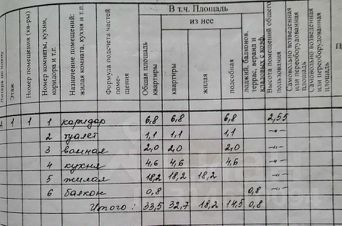 В т.ч. Площадь
из нее
Этаж
Номер помещения (кв-ры)
Номер комнаты, кухни, коридора и т.п.
Назначение помещений: жилая комната, кухня и т.п.
Формула подсчета частей помещения
Общая площадь квартиры
квартиры
жилая
подсобная
лоджий, балконов, террас, веранд и кладовых с коэф.
Высота помещений
Самовольно возведенная или переоборудованная площадь
1 1 1 коридор 6,8 6,8 6,8 2,55
2 туалет 1,1 1,1 1,1 -"-
3 ванная 2,0 2,0 2,0 -"-
4 кухня 4,6 4,6 4,6 -"-
5 жилая 18,2 18,2 18,2 -"-
6 балкон 0,8 0,8 -"-
Итого: 33,5 32,7 18,2 14,5 0,8